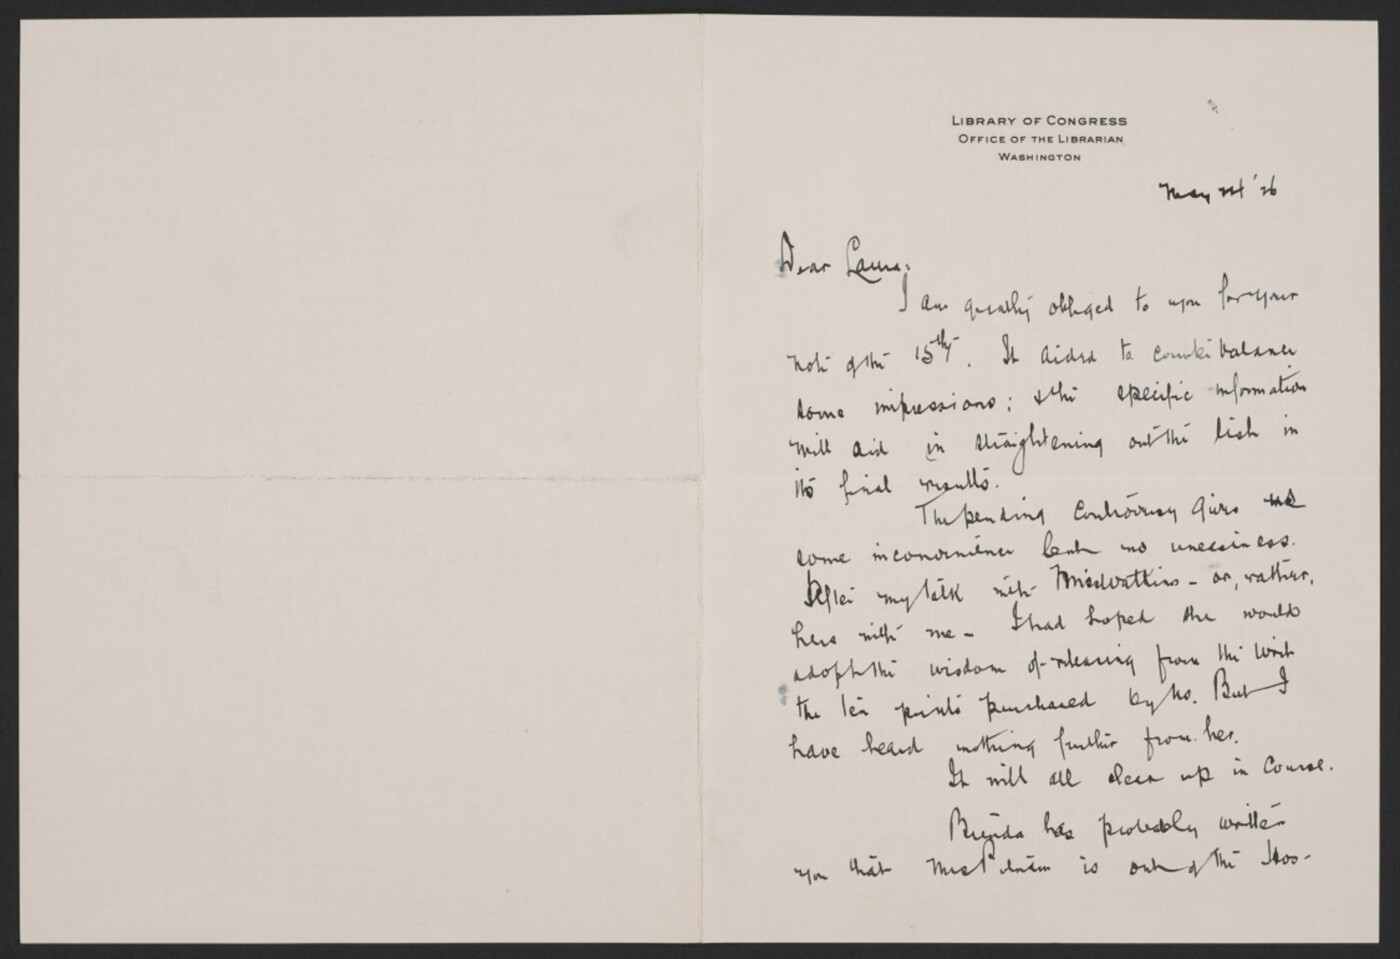 LIBRARY OF CONGRESS
OFFICE OF THE LIBRARIAN
WASHINGTON
May '26
Dear Laura:
I am greatly obliged to you for your
note of the 15th. It aided to counterbalance
some impressions: & the specific information
will aid in straightening out the list in
its final results.
The pending controversy gives me
some inconvenience but no uneasiness.
After my talk with Miss Watkins - or, rather,
hers with me - I had hoped she would
adopt the wisdom of releasing from the writ
the ten prints purchased by us. But I
have heard nothing further from her.
It will all clear up in course.
Brenda has probably written
you that Mrs Putnam is out of the Hos-